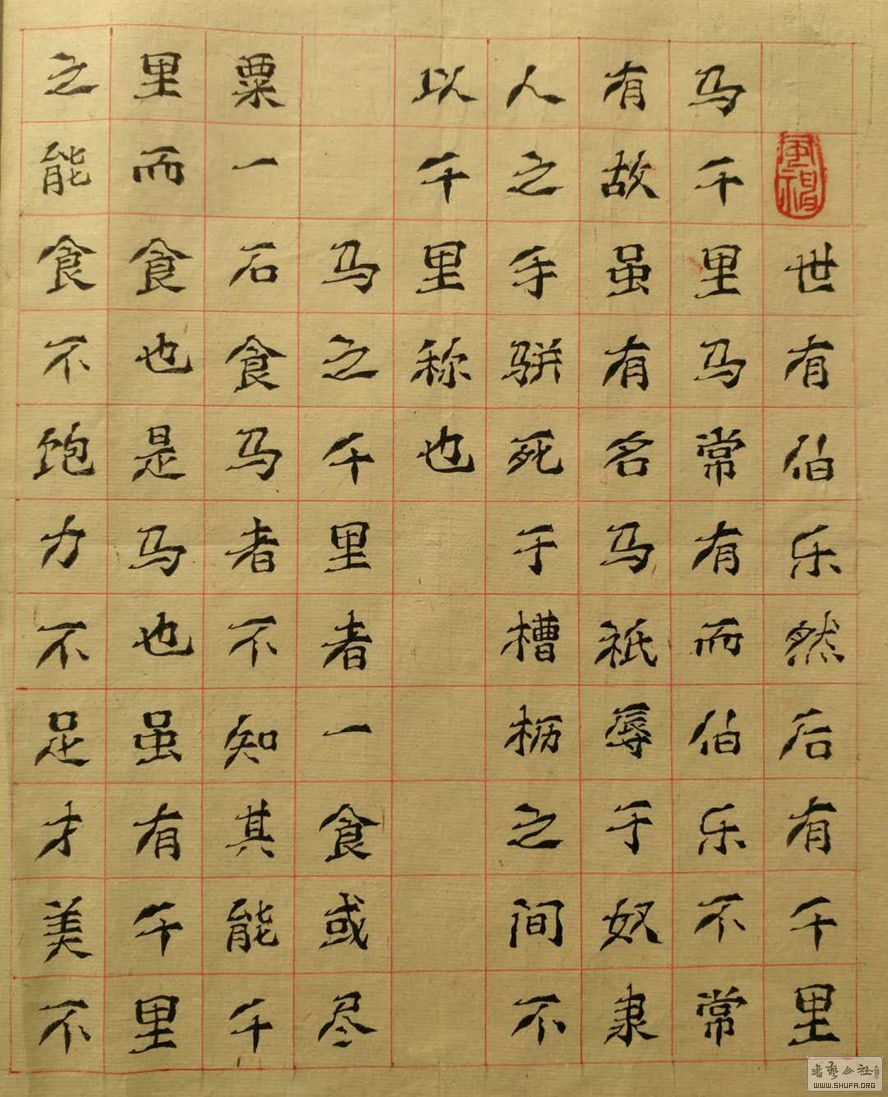 世有伯乐然后有千里
马千里马常有而伯乐不常
有故虽有名马祇辱于奴隶
人之手骈死于槽枥之间不
以千里称也
马之千里者一食或尽
粟一石食马者不知其能千
里而食也是马也虽有千里
之能食不饱力不足才美不
WWW.SHUFA.ORG